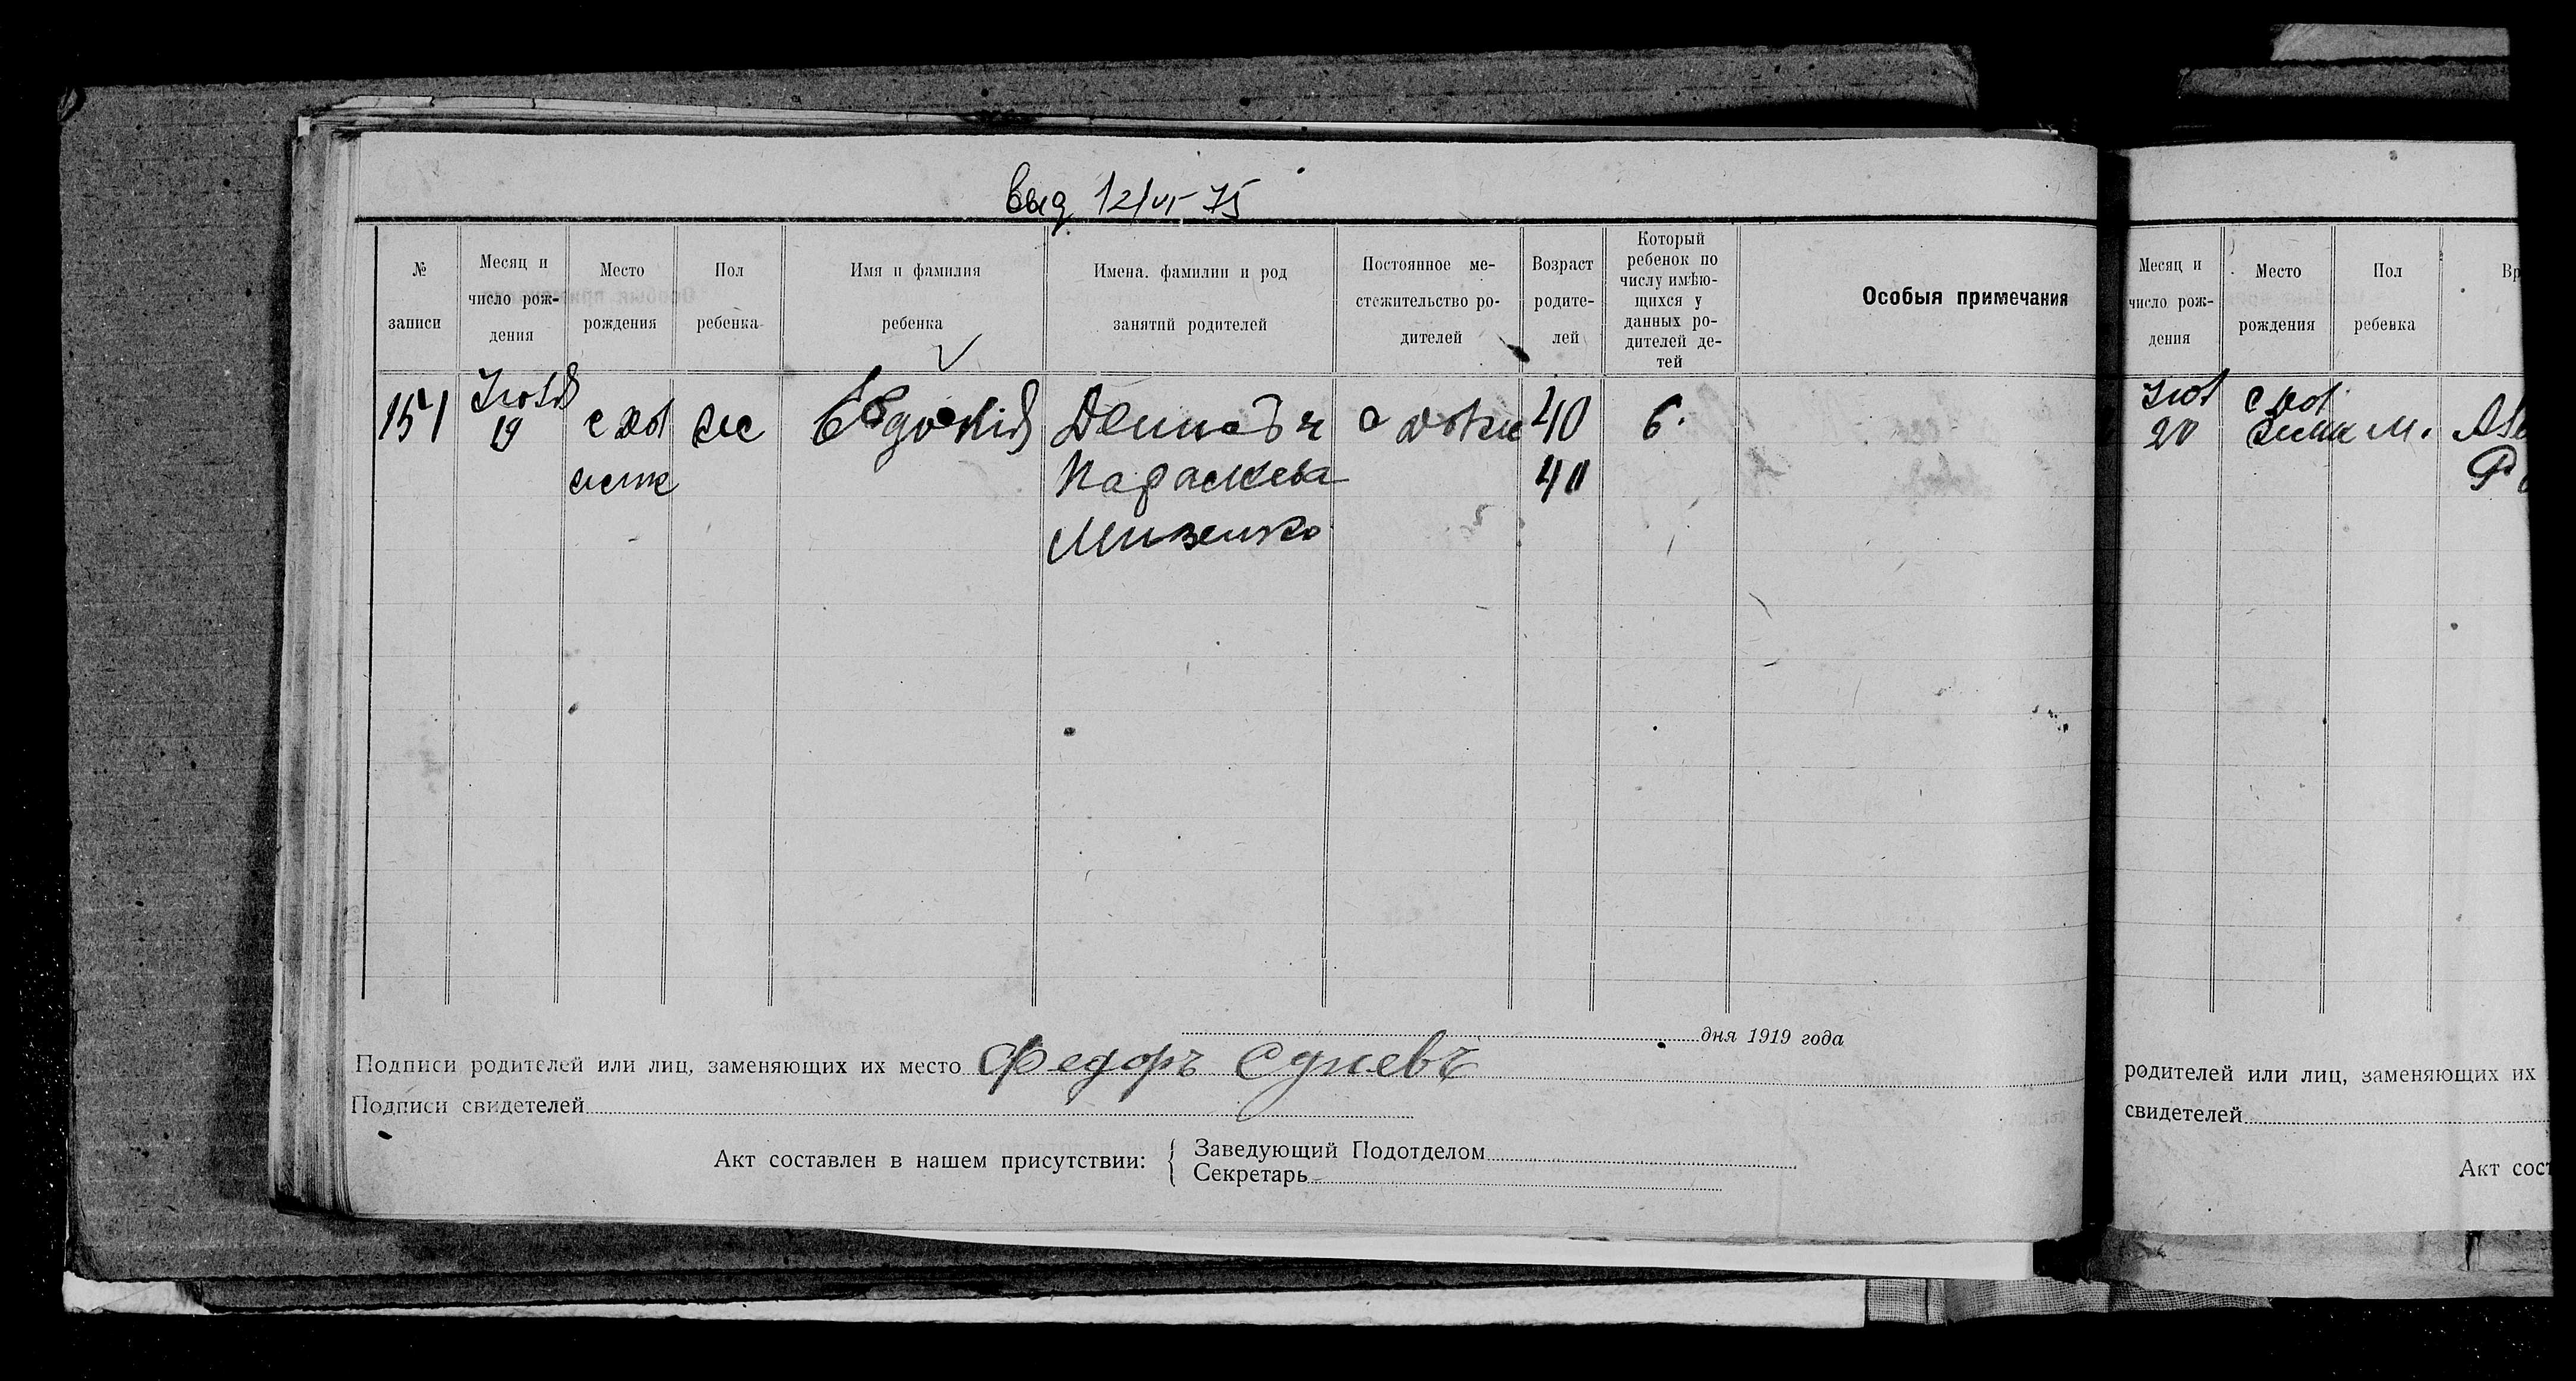 выд 12/VI-75
№ записи
Месяц и число рож-дения
Место рождения
Пол ребенка
Имя и фамилия ребенка
Имена. фамилии и род занятий родителей
Постоянное ме-стожительство ро-дителей
Возраст родите-лей
Который ребенок по числу имѣю-щихся у данных ро-дителей де-тей
Особыя примечания
151
19
с
Евдокия
40
6.
Параскева
40
Мизенко
дня 1919 года
Подписи родителей или лиц, заменяющих их место Федоръ
Подписи свидетелей
Акт составлен в нашем присутствии:
Заведующий Подотделом
Секретарь
Месяц и число рож-дения
Место рождения
Пол ребенка
20
м.
родителей или лиц, заменяющих их
свидетелей
Акт сост